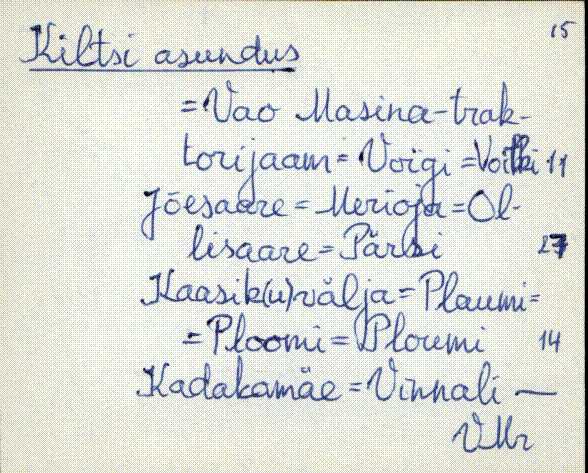 15
Kiltsi asundus
= Vao Masina-trak-
torijaam = Voigi = Voitki 11
Jõesaare = Merioja = Ol-
lisaare = Pärbi 27
Kaasik(u)välja = Plaumi =
= Ploomi = Ploumi 14
Kadakamäe = Vinnali —
VMr